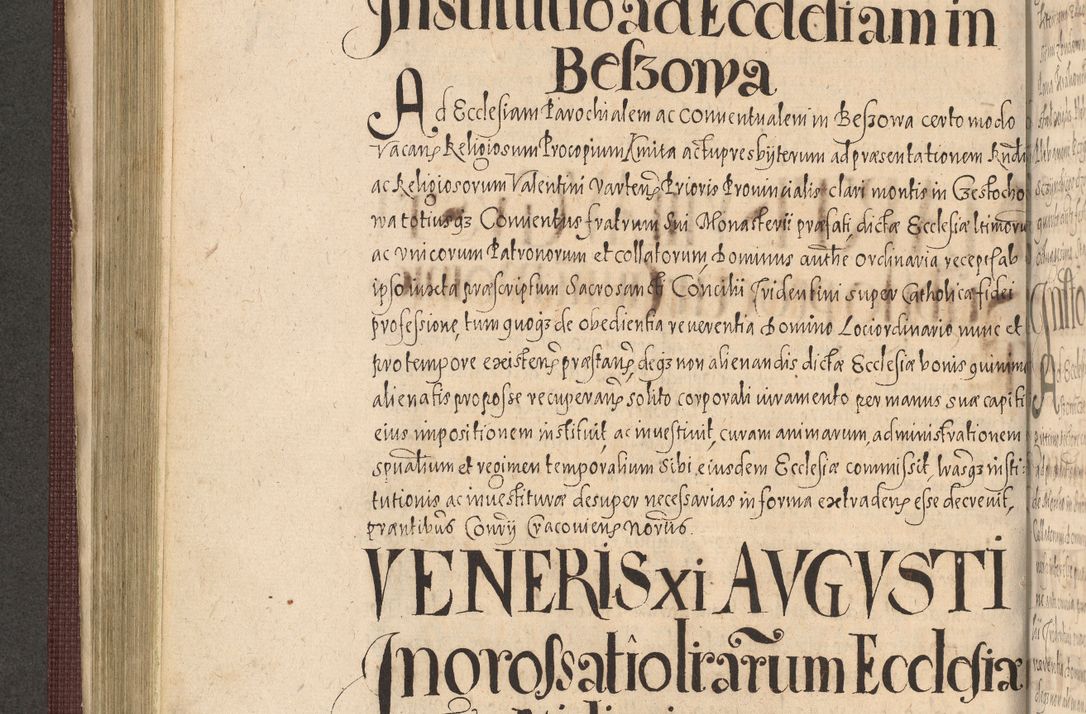 Institutio ad Ecclesiam in
Beszowa
Ad Ecclesiam Parochialem ac conventualem in Beszowa certo modo
vacanẽ Religiosum Procopium Xmita actu presbyterum ad præsentationem Rndi
ac Religiosorum Valentini Partenẽ Prioris Provincialis clari montis in Czestocho
wa totiusqʒ Conventus fratrum Sui Monasterii præfati, dictæ Ecclesiæ ltimorum
ac unicorum Patronorum et collatorum, Dominus authe ordinaria recept. sab
ipso iuxta præscriptum Sacrosancti Concilii Tridentini super Catholica fidei
professione, tum quoqʒ de obedientia reverentia Domino Loci ordinario nunc et
pro tempore existenẽ præstanẽ, deqʒ non alienandis dictæ Ecclesiæ bonis quinimo
alienatis pro posse recuperanẽ solito corporali iuramento per manus suæ capiti
eius impositionem instituit, ac investivit, curam animarum, administrationem
spualium et regimen temporalium Sibi, eiusdem Ecclesiæ commissit, lrasqʒ insti:
tutionis ac investituræ desuper necessarias in forma extradenẽ esse decrevit,
præntibus Conrÿ Cracovienẽ Norÿs.
VENERIS xi AVGVSTI
Ingrossatio lrarum Ecclesiæ